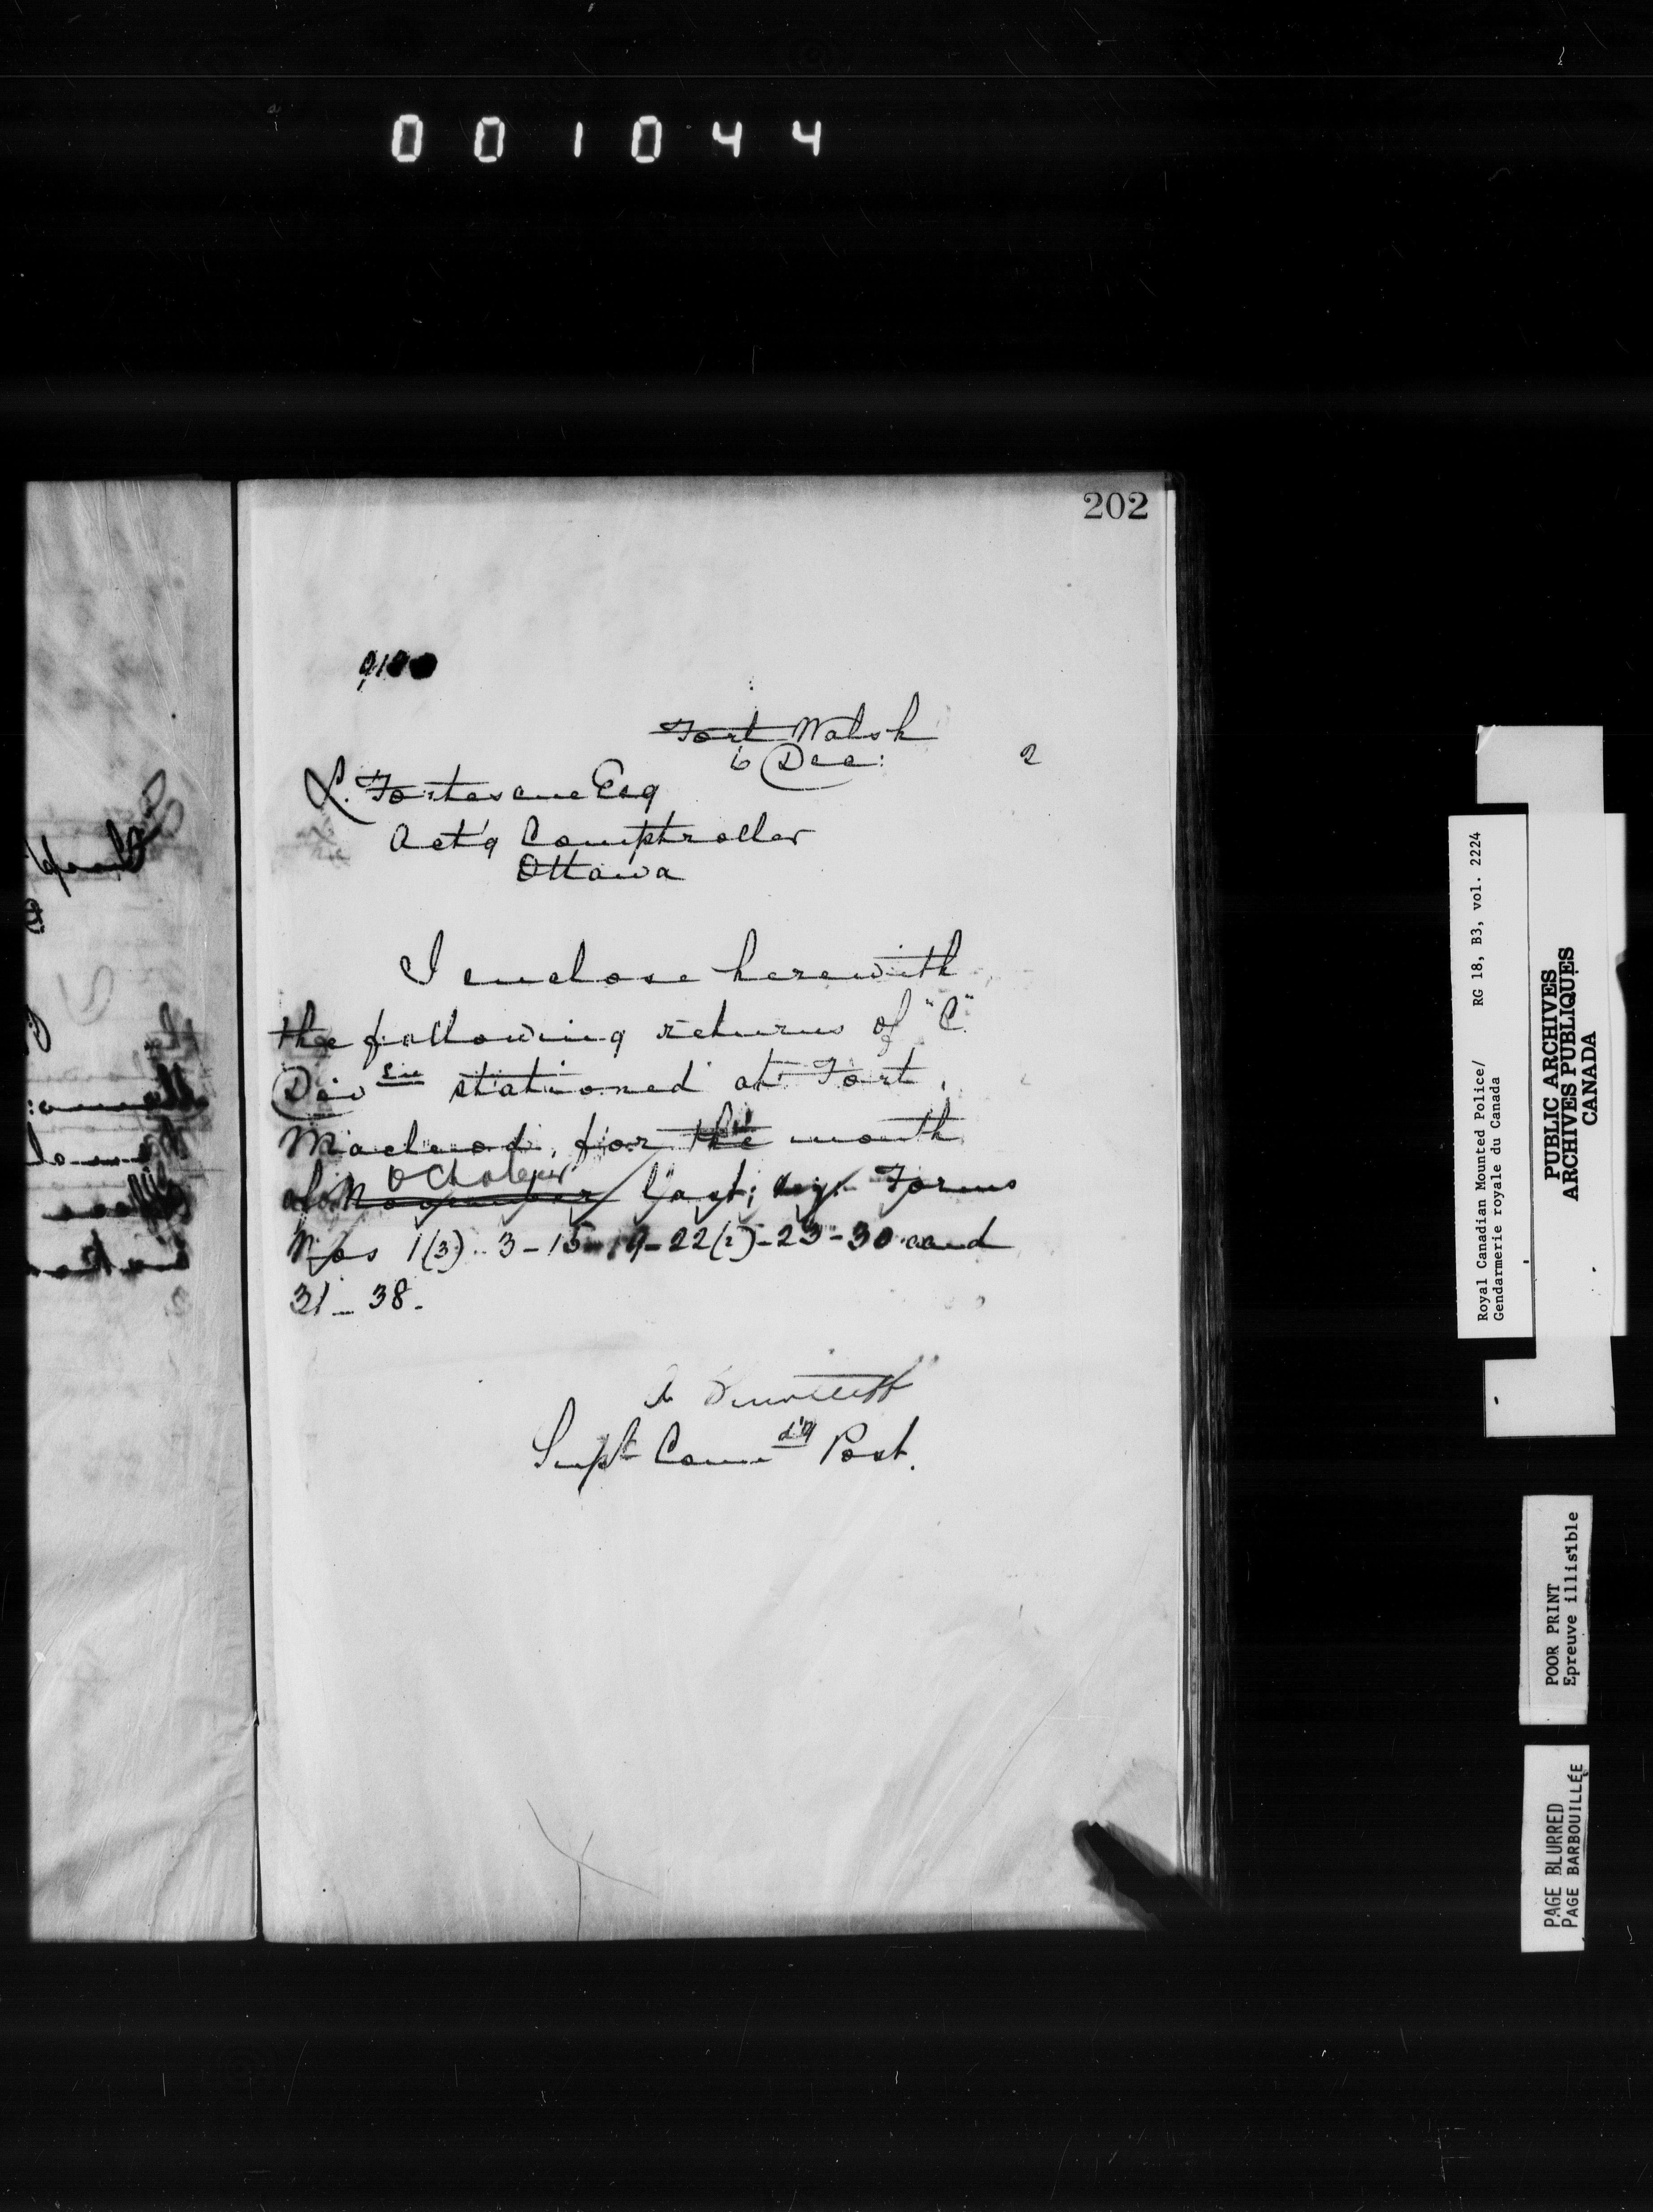 001044
202
Fort Walsh
6 Dec: 2
L. Fortescue Esq
Act'g Comptroller
Ottawa
I enclose herewith
the following returns of "C"
Div.on stationed at Fort
Macleod, for the month
of November October last; Forms
Nos 1(3) - 3 - 15 - 19 - 22(2) - 23 - 30 and
31 - 38 -
Supt Comd'g Post.
Royal Canadian Mounted Police/ RG 18, B3, vol. 2224
Gendarmerie royale du Canada
PUBLIC ARCHIVES
ARCHIVES PUBLIQUES
CANADA
POOR PRINT
Epreuve illisible
PAGE BLURRED
PAGE BARBOUILLÉE